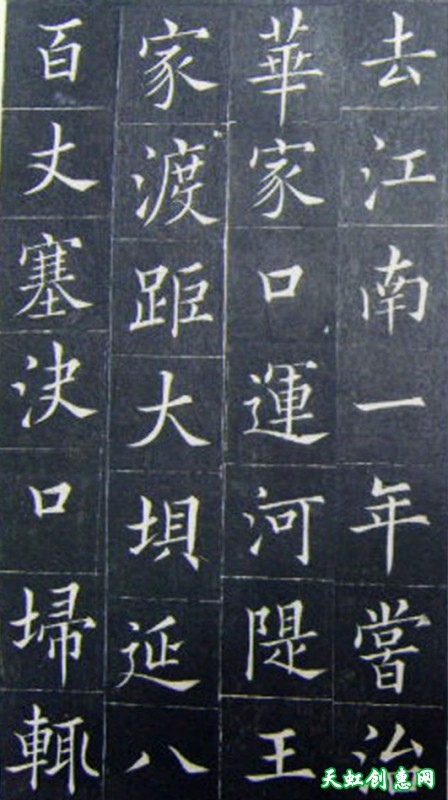 去江南一年嘗治
華家口運河隄王
家渡距大垻延八
百丈塞決口埽輒
天虹创惠网